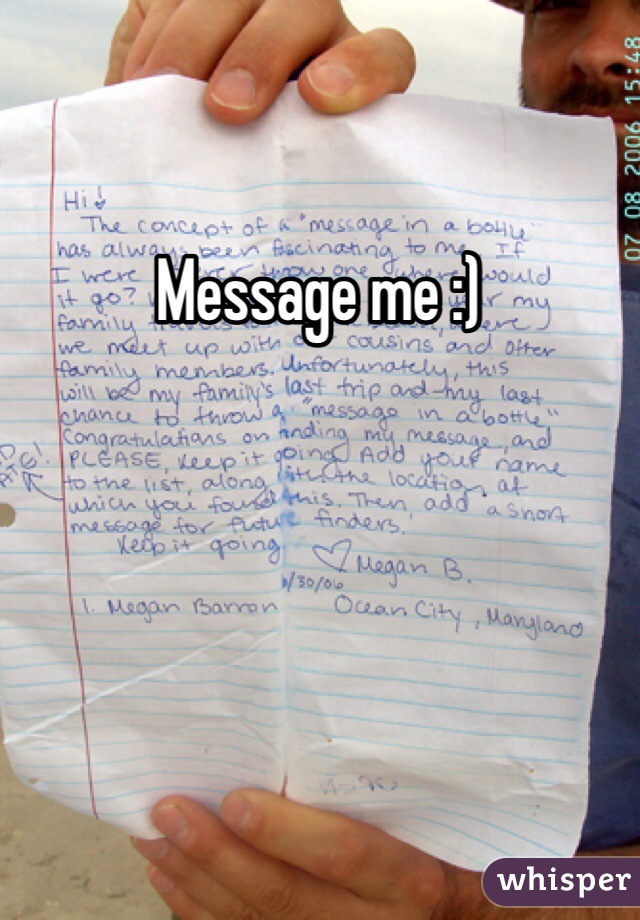 07 08 2006 15:48
Hi!
The concept of a "message in a bottle"
has always been fascinating to me. If
I were throw one where would
it go? my
Message me :)
family
we meet up with cousins, and other
family members. Unfortunately, this
will be my family's last trip and my last
chance to throw a "message in a bottle"
Congratulations on finding my message, and
PLEASE, keep it going! Add your name
to the list, along with the location at
which you found this. Then, add a short
message for future finders.
Keep it going
♡ Megan B.
/30/06
1. Megan Barron Ocean City, Maryland
whisper